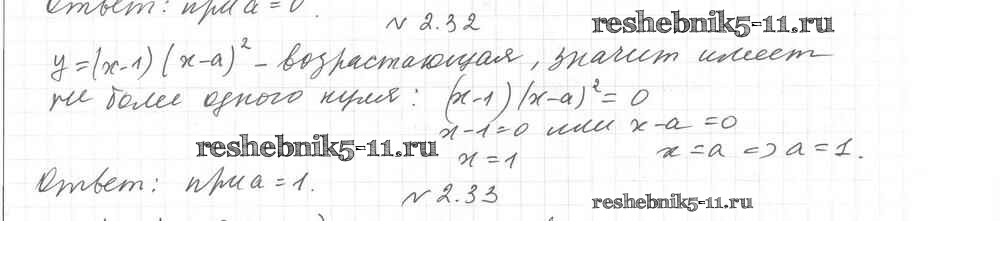 Ответ: при a = 0.
№ 2.32 reshebnik5-11.ru
y = (x-1)(x-a)² - возрастающая, значит имеет
не более одного нуля: (x-1)(x-a)² = 0
x-1=0 или x-a=0
reshebnik5-11.ru x=1 x=a => a=1.
Ответ: при a=1.
№ 2.33 reshebnik5-11.ru